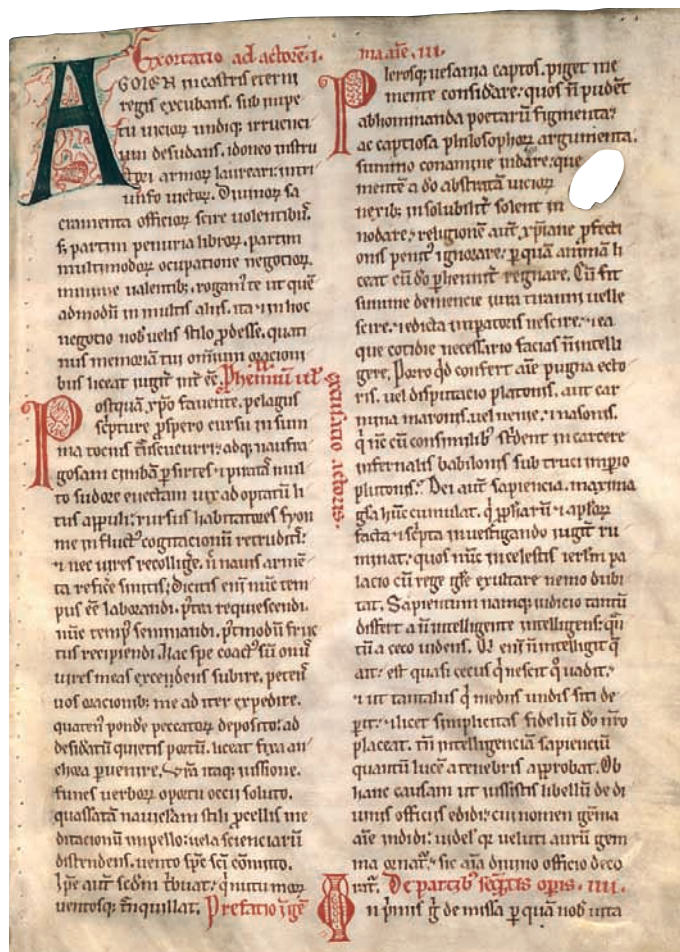 Exortatio ad actorē. i.
AGMEN in castris eterni
regis excubans. sub impe
tu uicioꝝ undiqꝫ irruenci
um desudans. idoneo instru
ctui armoꝝ laureari: in tri
umfo uictoꝝ. Diuinoꝝ sa
cramenta officioꝝ scire uolentibꝰ.
sꝫ partim penuria libroꝝ. partim
multimodoꝝ ocupatione negocioꝝ.
minime ualentibꝫ. roganꝰ te ut quē
admodū in multis aliis. ita ⁊ in hoc
negotio nobꝰ uelis stilo ꝓdesse. quati
nus memoriā tui om̄ium oracioni
bus liceat iugit̄ int̄ eē. Phemiū ut̄
excusatio actoris.
Postquā xp̄o fauente. pelagus
sc̄pture ꝓspero cursu in sum
ma tocius t̄iscucurri: adqꝫ naufra
gosam cimbā ꝑ sirtes ⁊ piratā mul
to sudore euectam uix ad optatū li
tus appuli: rursus habitatores syon
me in fluctꝰ cogitacionū retruditis:
⁊ nec uires recollige. ń nauis armē
ta refice sinitis; Dicitis eni nūc tem
pus eē laborandi. p̄tea requiescendi.
nūc tempꝰ seminandi. p̄tmodū fruc
tus recipiendi. Hac spe coactꝰ sū om̄s
uires meas excedens subire. peten̄
uos oracionibꝫ me ad iter expedire.
quaten̄ ponde peccatoꝝ deposito: ad
desidatū quietis portū. liceat fixa an
chora ꝑuenire. Vr̄a itaqꝫ iussione.
funes uerboꝝ oportu occii soluto.
quassatā nauiclam stili ꝓcellis me
ditacionū impello: uela scienciarū
distendens. uento spc̄ sc̄i cōmitto.
Ip̄e aut̄ secdm̄ t̄buat: qͥ mitū maꝝ
uentosqꝫ t̄nquillat. Prefatio ī gē
ma aīe. iii.
Plerosqꝫ uesania captos. piget me
mente considare: quos ń pudēt
abhominanda poetarū figmenta:
ac captiosa philosophoꝝ argumenta.
summo conamine indare: que
mentē a do abstratā uicioꝝ
nexibꝫ in solubilit̄ solent in
nodare: religionē aut̄ xp̄iane ꝓfecti
onis penitꝰ ignorare: ꝑ quā animā li
ceat cū do ꝑhennit̄ regnare. Cū sit
summe demencie iura tiranni uelle
scire. ⁊ edicta impatoris nescire. ⁊ ea
que cotidie necessario facias ń intelli
gere. Porro qd̄ confert aīe pugna ecto
ris. uel disputacio platonis. aut car
mina maronis. uel neniē. ⁊ nasonis.
qͥ nc̄ cū consimilibꝰ st̄dent in carcere
infernalis babilonis sub truci impio
plutonis: Dei aut̄ sapiencia. maxima
gl̄a hūc cumulat. qͥ ꝓph̄arū ⁊ apl̄oꝝ
facta ⁊ sc̄pta inuestigando iugit̄ ru
minat. quos nūc in celestis ierl̄m pa
lacio cū rege gl̄e exultare nemo dubi
tat. Sapientum namqꝫ iudicio tantū
differt a ń intelligente intelligens: qͣn
tū a ceco uidens. Qͥ eni ń intelligit qͥ
ait: est quasi cecus qͥ nescit qͦ uadit.
⁊ ut tantalus qͥ mediis undis siti de
perit. ⁊ licet simplicitas fideliū do nr̄o
placeat. tn̄ intelligenciā sapienciū
quantū lucē a tenebris approbat. Ob
hanc causam ut iussistis libellū de di
uinis officiis edidi: cui nomen gēma
aīe indidi: uidel̄ qr̄ ueluti aurū gem
ma ornat̄. sic aīa diuino officio deco
rat̄. De partibꝰ seq̄ntis opis. iiii.
In pͥmis g̊ de missa ꝑ quā nobꝰ uita